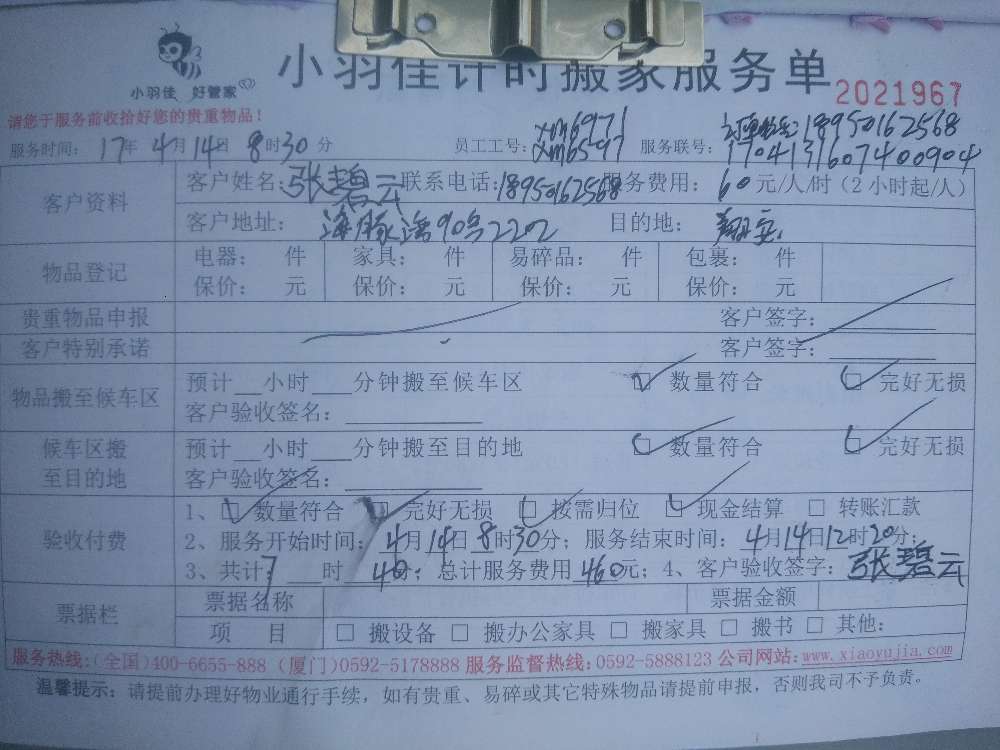 小羽佳 好管家
小羽佳计时搬家服务单
2021967
请您于服务前收拾好您的贵重物品！
服务时间：17年4月14日8时30分 员工工号：xm6971 xm6597 服务联号：18950162568
1704131607400904
客户资料 客户姓名：张碧云 联系电话：18950162568 服务费用：60元/人/时（2小时起/人）
客户地址：90号2202 目的地：翔安
物品登记 电器： 件 家具： 件 易碎品： 件 包裹： 件
保价： 元 保价： 元 保价： 元 保价： 元
贵重物品申报 客户签字：
客户特别承诺 客户签字：
物品搬至候车区 预计__小时___分钟搬至候车区 □ 数量符合 □ 完好无损
客户验收签名：
候车区搬至目的地 预计__小时___分钟搬至目的地 □ 数量符合 □ 完好无损
客户验收签名：
验收付费 1、□ 数量符合 □ 完好无损 □ 按需归位 □ 现金结算 □ 转账汇款
2、服务开始时间：4月14日8时30分；服务结束时间：4月14日12时20分；
3、共计：7时40分；总计服务费用460元；4、客户验收签字：张碧云
票据栏 票据名称 票据金额
项 目 □ 搬设备 □ 搬办公家具 □ 搬家具 □ 搬书 □ 其他：
服务热线：(全国)400-6655-888 (厦门)0592-5178888 服务监督热线：0592-5888123 公司网站：www.xiaoyujia.com
温馨提示：请提前办理好物业通行手续，如有贵重、易碎或其它特殊物品请提前申报，否则我司不予负责。